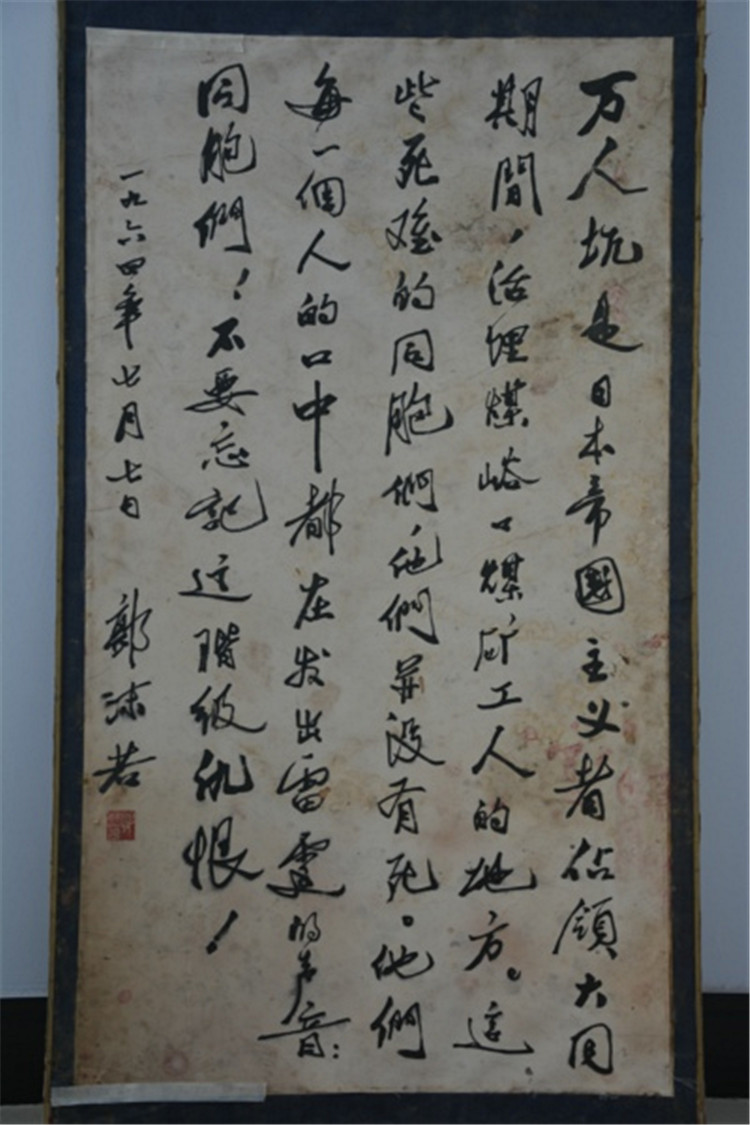 万人坑是日本帝國主义者佔領大同
期間，活埋煤峪口煤矿工人的地方。這
些死难的同胞們，他們並没有死。他們
每一個人的口中都在发出雷霆的声音：
同胞們！不要忘记这階級仇恨！
一九六四年七月七日
郭沫若